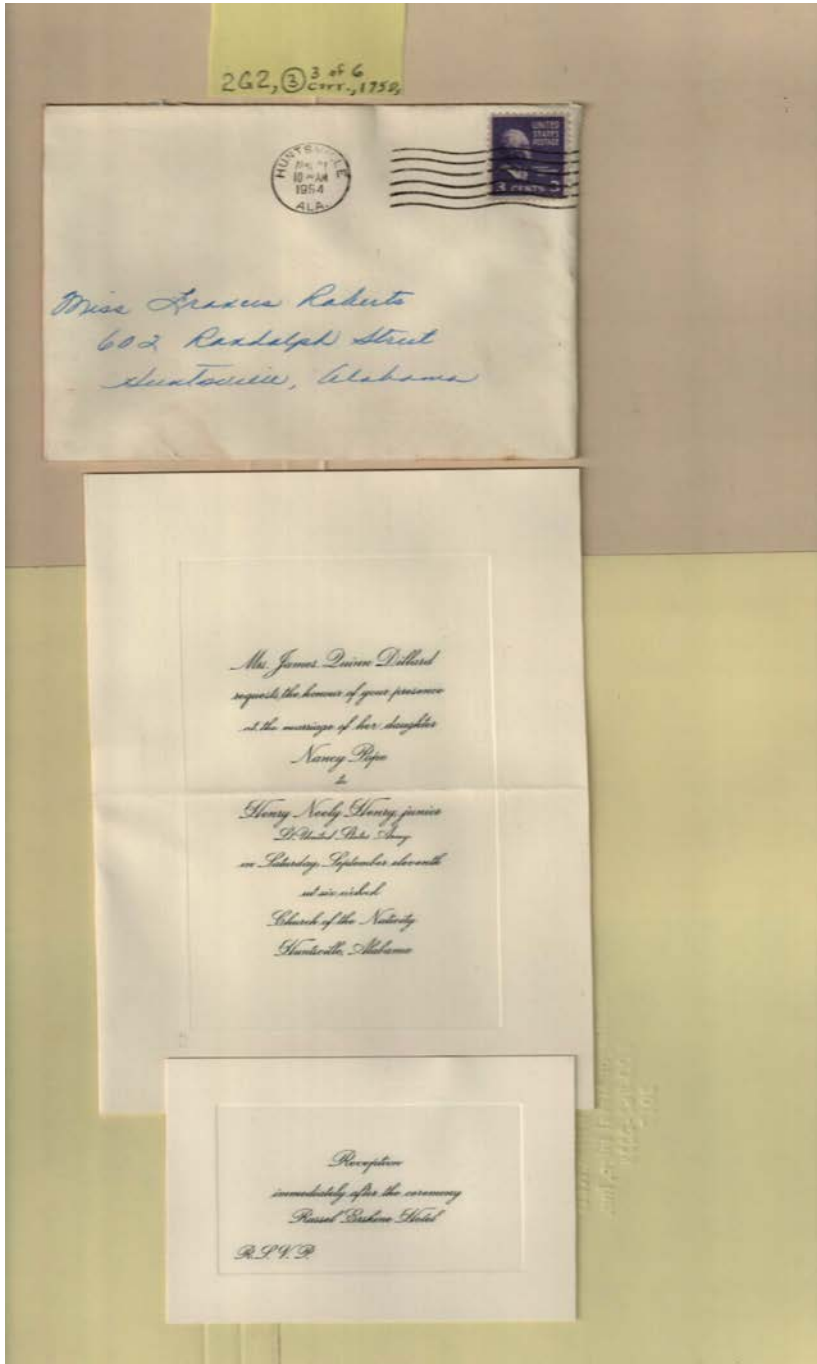 2G2, ③ 3 of 6
corr., 1950,
HUNTSVILLE
10 AM
1954
ALA.
UNITED
STATES
POSTAGE
3 CENTS 3
Miss Frances Roberts
602 Randolph Street
Huntsville, Alabama
Mrs. James Quinn Dillard
requests the honour of your presence
at the marriage of her daughter
Nancy Pope
to
Henry Neely Henry, junior
Lt United States Army
on Saturday, September eleventh
at six o'clock
Church of the Nativity
Huntsville, Alabama
Reception
immediately after the ceremony
Russel Erskine Hotel
R.S.V.P.